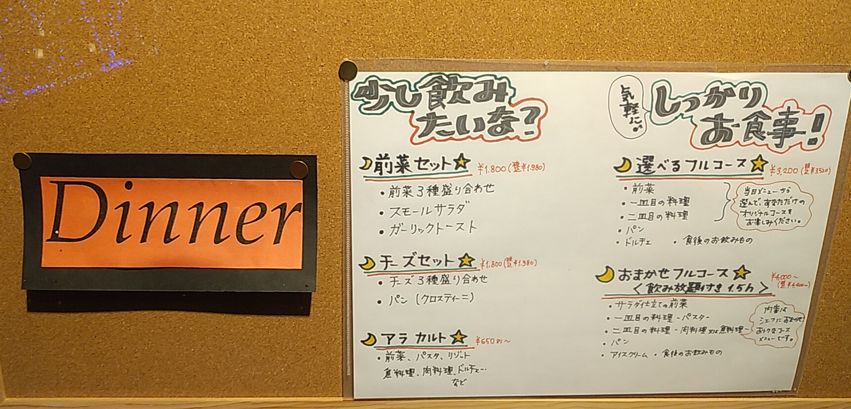 Dinner
少し飲み
たいな?
前菜セット ¥1.800(税¥1.980)
・前菜3種盛り合わせ
・スモールサラダ
・ガーリックトースト
チーズセット ¥1.800(税¥1.980)
・チーズ3種盛り合わせ
・パン(クロスティーニ)
アラカルト ¥650〜
・前菜、パスタ、リゾット
魚料理、肉料理、ドルチェ…
など
気軽に
しっかり
お食事!
選べるフルコース ¥3,200
・前菜
・一皿目の料理
・二皿目の料理
・パン
・ドルチェ ・食後のお飲もの
当日メニューから
選んで、あなただけの
オリジナルコースを
お楽しみください。
おまかせフルコース ¥4,000〜
<飲み放題付き 1.5h>
・サラダ仕立ての前菜
・一皿目の料理-パスタ-
・二皿目の料理-肉料理又は魚料理-
・パン
・アイスクリーム ・食後のお飲もの
内容は
シェフにおまかせ
おトクなコース
メニューです。